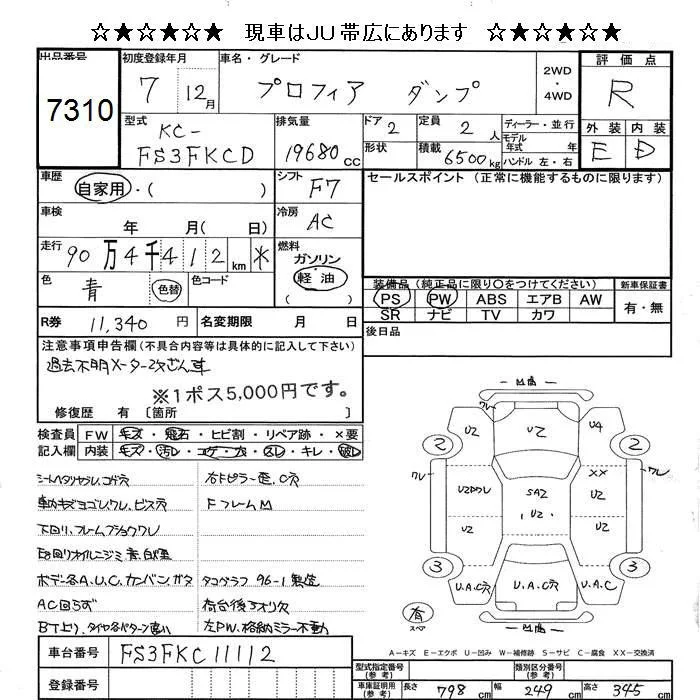 ☆★☆★☆★ 現車はJU帯広にあります ☆★☆★☆★
出品番号 7310
初度登録年月 7 12月
車名・グレード プロフィア ダンプ
2WD・4WD
評価点 R
外装 E 内装 D
型式 KC-FS3FKCD
排気量 19680cc
ドア 2
形状
定員 2人
積載 6500kg
ディーラー・並行
モデル年式 年式
ハンドル 左・右
車歴 自家用・( )
シフト F7
セールスポイント (正常に機能するものに限ります)
車検 年 月( 日)
冷房 AC
走行 90万4千412km *
燃料 ガソリン 軽油 ( )
色 青 色替
色コード
装備品(純正品に限り○をつけてください)
新車保証書
PS PW ABS エアB AW
SR ナビ TV カワ
有・無
R券 11,340円
名変期限 月 日
後日品
注意事項申告欄(不具合内容等は具体的に記入して下さい)
過去不明メーター2次ざん車
※1ポス5,000円です。
修復歴 有 〔箇所 〕
検査員記入欄
FW キズ・飛石・ヒビ割・リペア跡・×要
内装 キズ・汚レ・コゲ・穴・スレ・キレ・破レ
右Fピラー歪、C穴
FフレームM
下回リ、フレームフショクワレ
ボデー各A.U.C.カーバンガタ
タコグラフ 96-1製造
AC回らず
荷台後ろオリ穴
BT上り、タイヤ各パターン違い
左PW、格納ミラー不動
凹傷
ワレ U2 U2 U4
2 2
ワレ XX ワレ
U2 SA2 U2
U2 U2 U2
3 3
U.A.C穴 U.A.C穴 U.A.C
有 スペア
凹傷
A－キズ E－エクボ U－凹み W－補修跡 S－サビ C－腐食 XX－交換済
車台番号 FS3FKC11112
登録番号
型式指定番号(参考)
類別区分番号(参考)
車庫証明用(参考) 長さ 798cm 幅 249cm 高さ 345cm